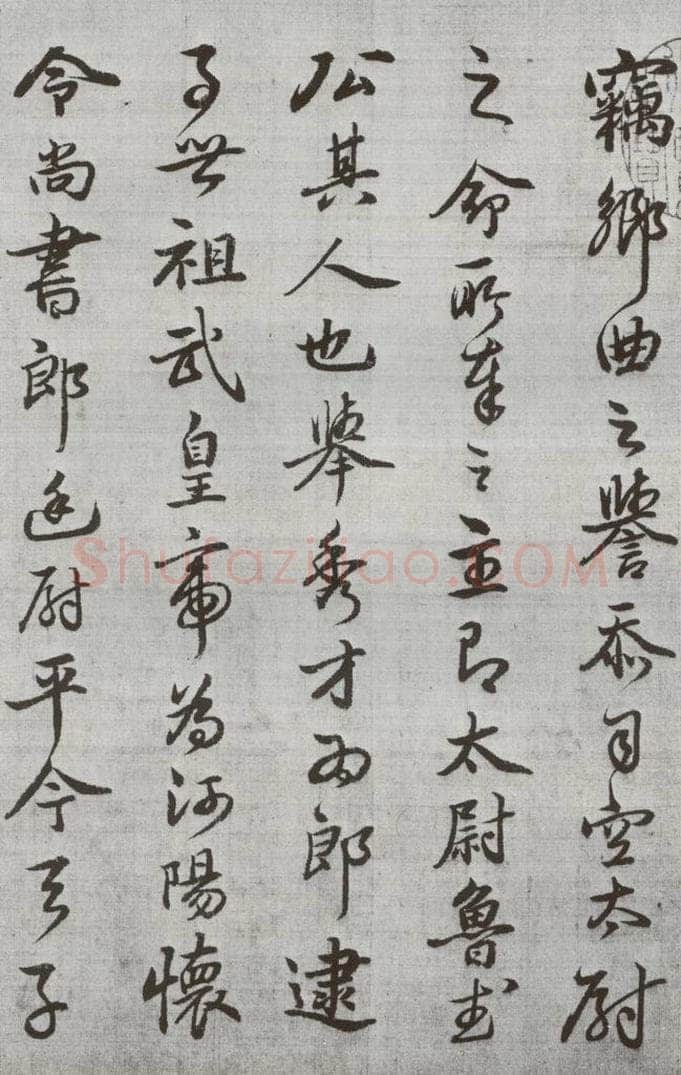 竊鄉曲之譽忝司空太尉
之命所奉之主即太尉魯武
公其人也舉秀才為郎逮
事世祖武皇帝為河陽懷
令尚書郎廷尉平今天子